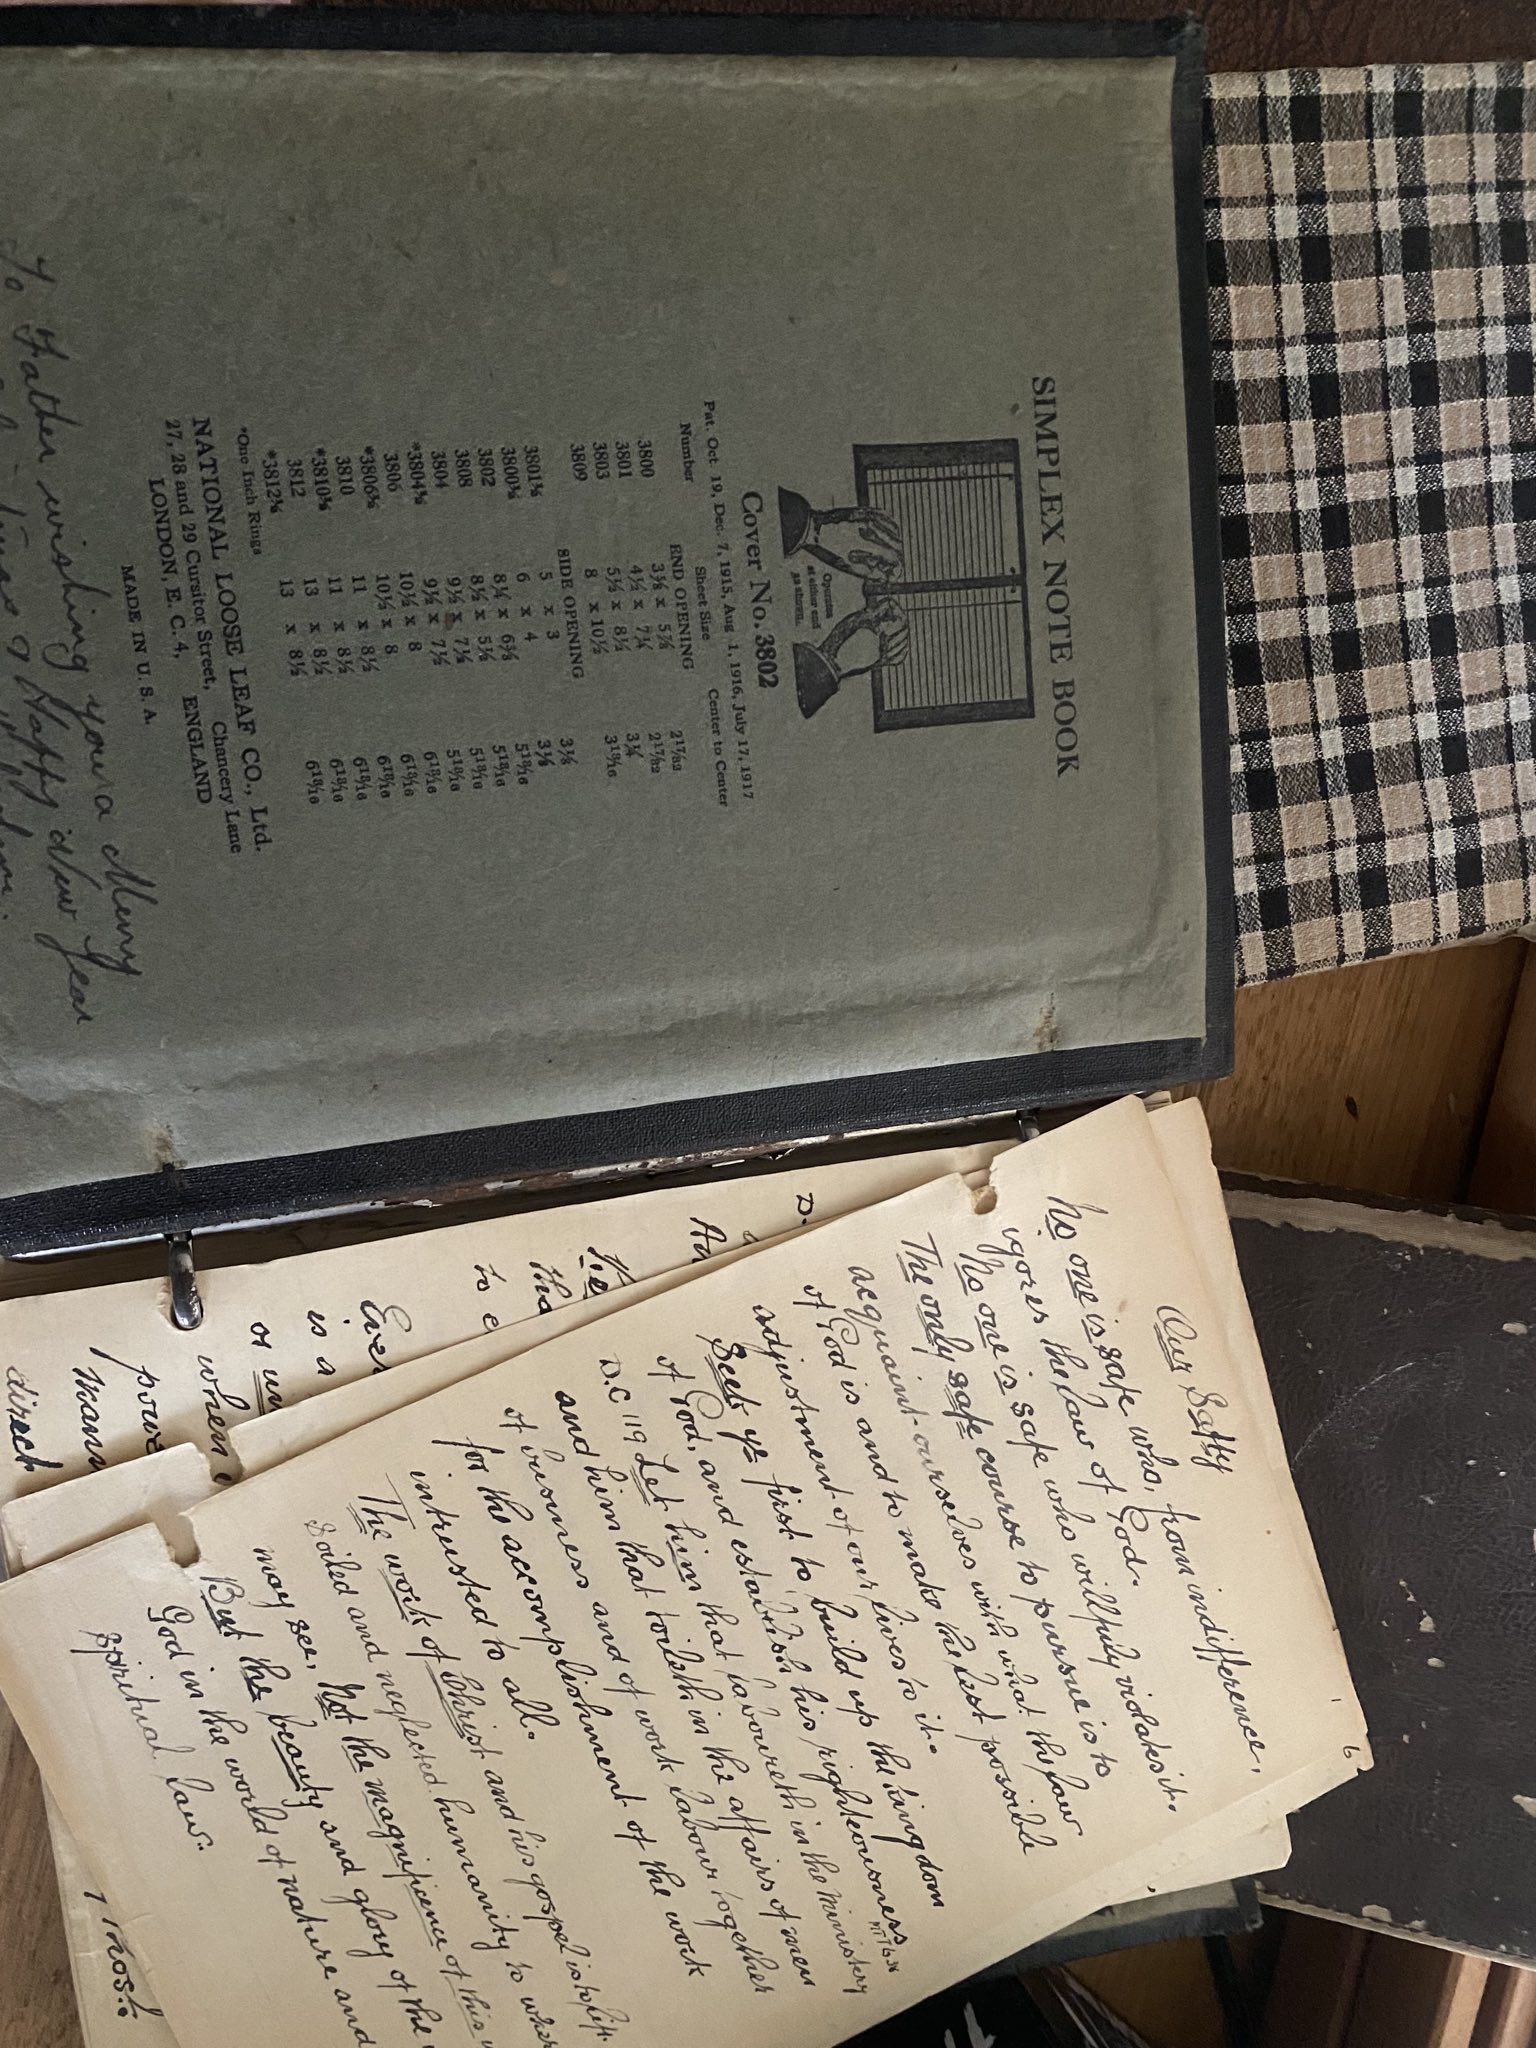 SIMPLEX NOTE BOOK
Opens
at either end
as shown.
Cover No. 3802
Pat. Oct 19, Dec. 7, 1915, Aug 1, 1916, July 17, 1917
Number Sheet Size Center to Center
END OPENING
3800 3⅜ x 5⅞ 2 17/32
3801 4½ x 7¼ 2 17/32
3803 5½ x 8½ 3¾
3809 8 x 10½ 3 13/16
SIDE OPENING
3801⅜ 5 x 3 3⅛
3800⅜ 6 x 4 3⅛
3802 8¼ x 6⅜ 5 13/16
3808 8½ x 5½ 5 13/16
3804 9½ x 7¼ 5 13/16
*3804⅜ 9½ x 7½ 6 13/16
3806 10½ x 8 6 13/16
*3806⅜ 10½ x 8 6 13/16
3810 11 x 8½ 6 13/16
*3810⅜ 11 x 8½ 6 13/16
3812 13 x 8½ 6 13/16
*3812⅜ 13 x 8½
*One Inch Rings
NATIONAL LOOSE LEAF CO., Ltd.
27, 28 and 29 Cursitor Street, Chancery Lane
LONDON, E. C. 4, ENGLAND
MADE IN U. S. A.
To Father wishing you a Merry
& a Happy New Year
6
Our Safty
No one is safe who, from indifference,
igores the law of God.
No one is safe who willfully violates it.
The only safe course to pursue is to
acquaint ourselves with what the law
of God is and to make the best possible
adjustment of our lives to it.
Seek ye first to build up the kingdom
of God, and establish his righteousness
D.C 119 Let him that laboureth in the ministery
and him that toileth in the affairs of men
of buisness and of work labour together
for the accomplishment of the work
intrusted to all.
The work of Christ and his gospel is to lift
Soiled and neglected humanity to where
may see, Not the magnificence of this
But the beauty and glory of the
God in the world of nature and
Spiritual law.
D.
the
tha
to e
Ever
is a
or un
when
powe
Mann
direct